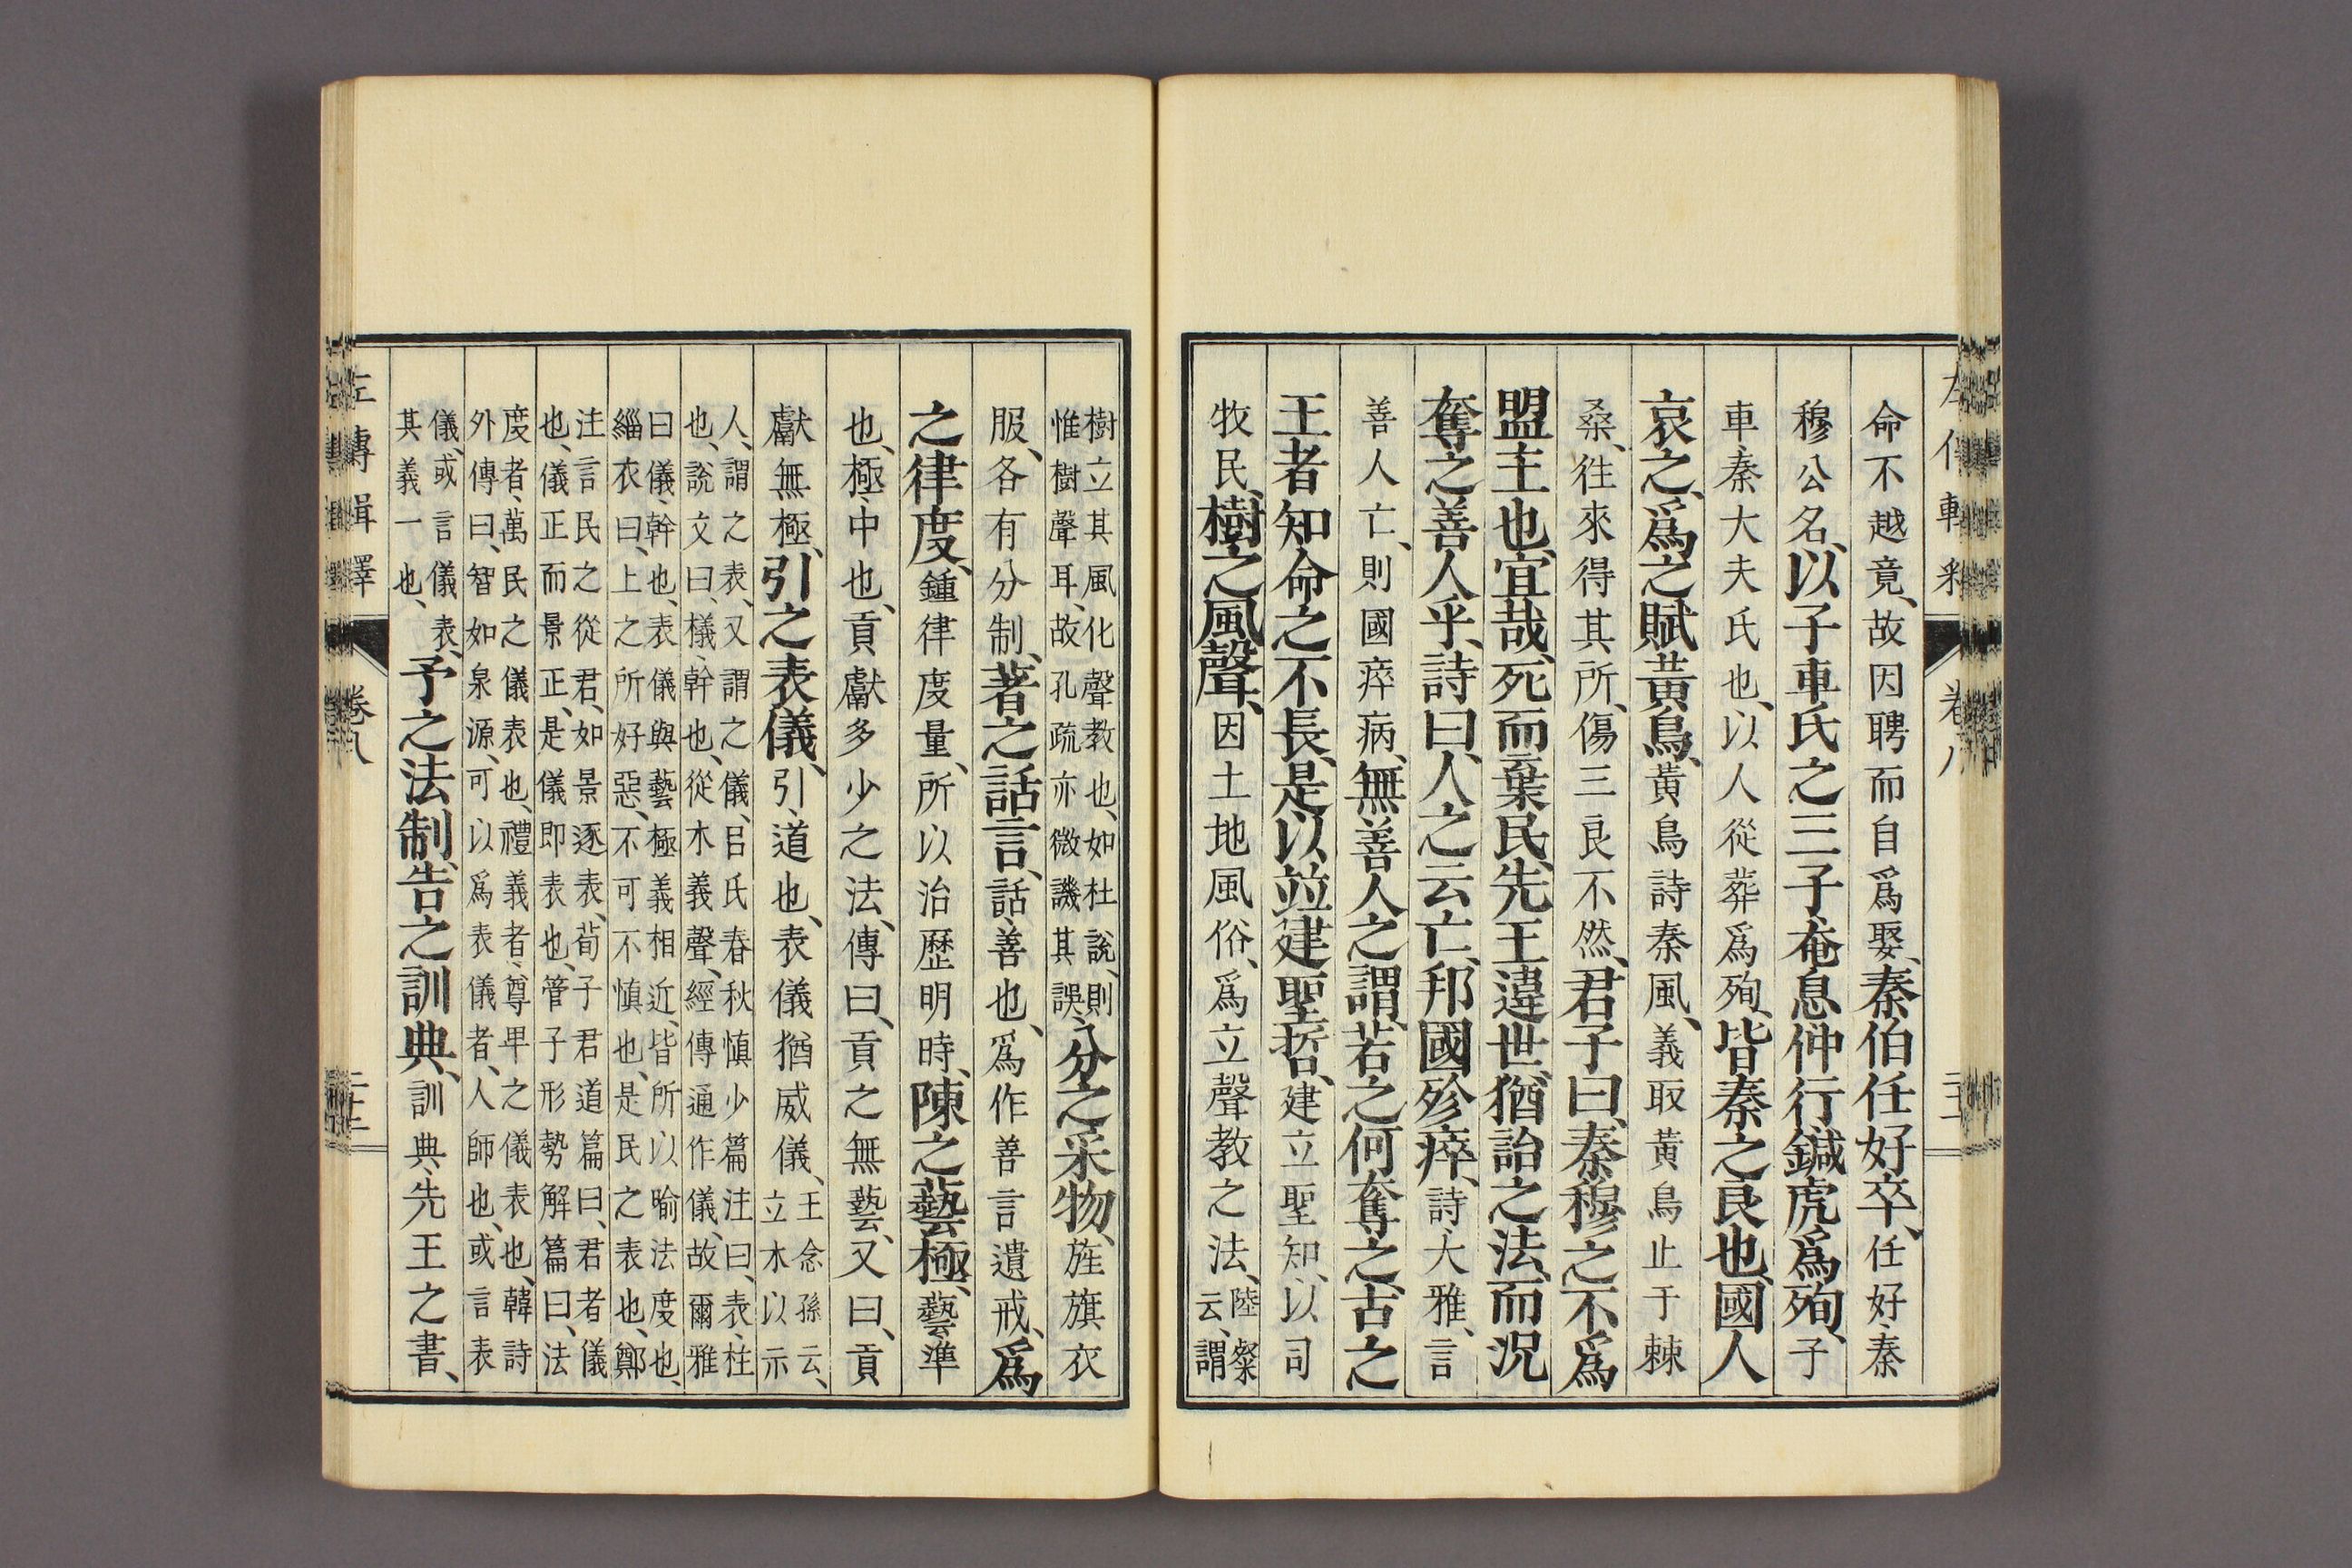 命不越竟、故因聘而自爲娶、秦伯任好卒、任好、秦
穆公名、以子車氏之三子奄息仲行鍼虎爲殉、子
車、秦大夫氏也、以人從葬爲殉、皆秦之良也、國人
哀之、爲之賦黃鳥、黃鳥詩秦風、義取黃鳥止于棘
桑、往來得其所、傷三良不然、君子曰、秦穆之不爲
盟主也、宜哉、死而棄民、先王違世、猶詒之法、而況
奪之善人乎、詩曰、人之云亡、邦國殄瘁、詩、大雅、言
善人亡、則國瘁病、無善人之謂、若之何奪之、古之
王者知命之不長、是以竝建聖哲、建立聖知、以司
牧民、樹之風聲、因土地風俗、爲立聲教之法、陸粲
云、謂
樹立其風化聲教也、如杜說、則
惟樹聲耳、故孔疏亦微譏其誤、分之采物、旌旗衣
服、各有分制、著之話言、話、善也、爲作善言遺戒、爲
之律度、鍾律度量、所以治歷明時、陳之藝極、藝準
也、極、中也、貢獻多少之法、傳曰、貢之無藝、又曰、貢
獻無極、引之表儀、引、道也、表儀猶威儀、王念孫云、
立木以示
人、謂之表、又謂之儀、呂氏春秋愼少篇注曰、表、柱
也、說文曰、檥、幹也、從木義聲、經傳通作儀、故爾雅
曰、儀、幹也、表儀與藝極義相近、皆所以喻法度也、
緇衣曰、上之所好惡、不可不愼也、是民之表也、鄭
注言民之從君、如景逐表、荀子君道篇曰、君者儀
也、儀正而景正、是儀即表也、管子形勢解篇曰、法
度者、萬民之儀表也、禮義者、尊卑之儀表也、韓詩
外傳曰、智如泉源、可以爲表儀者、人師也、或言表
儀、或言儀表、
其義一也、予之法制、告之訓典、訓典、先王之書、
左傳輯釋
卷八